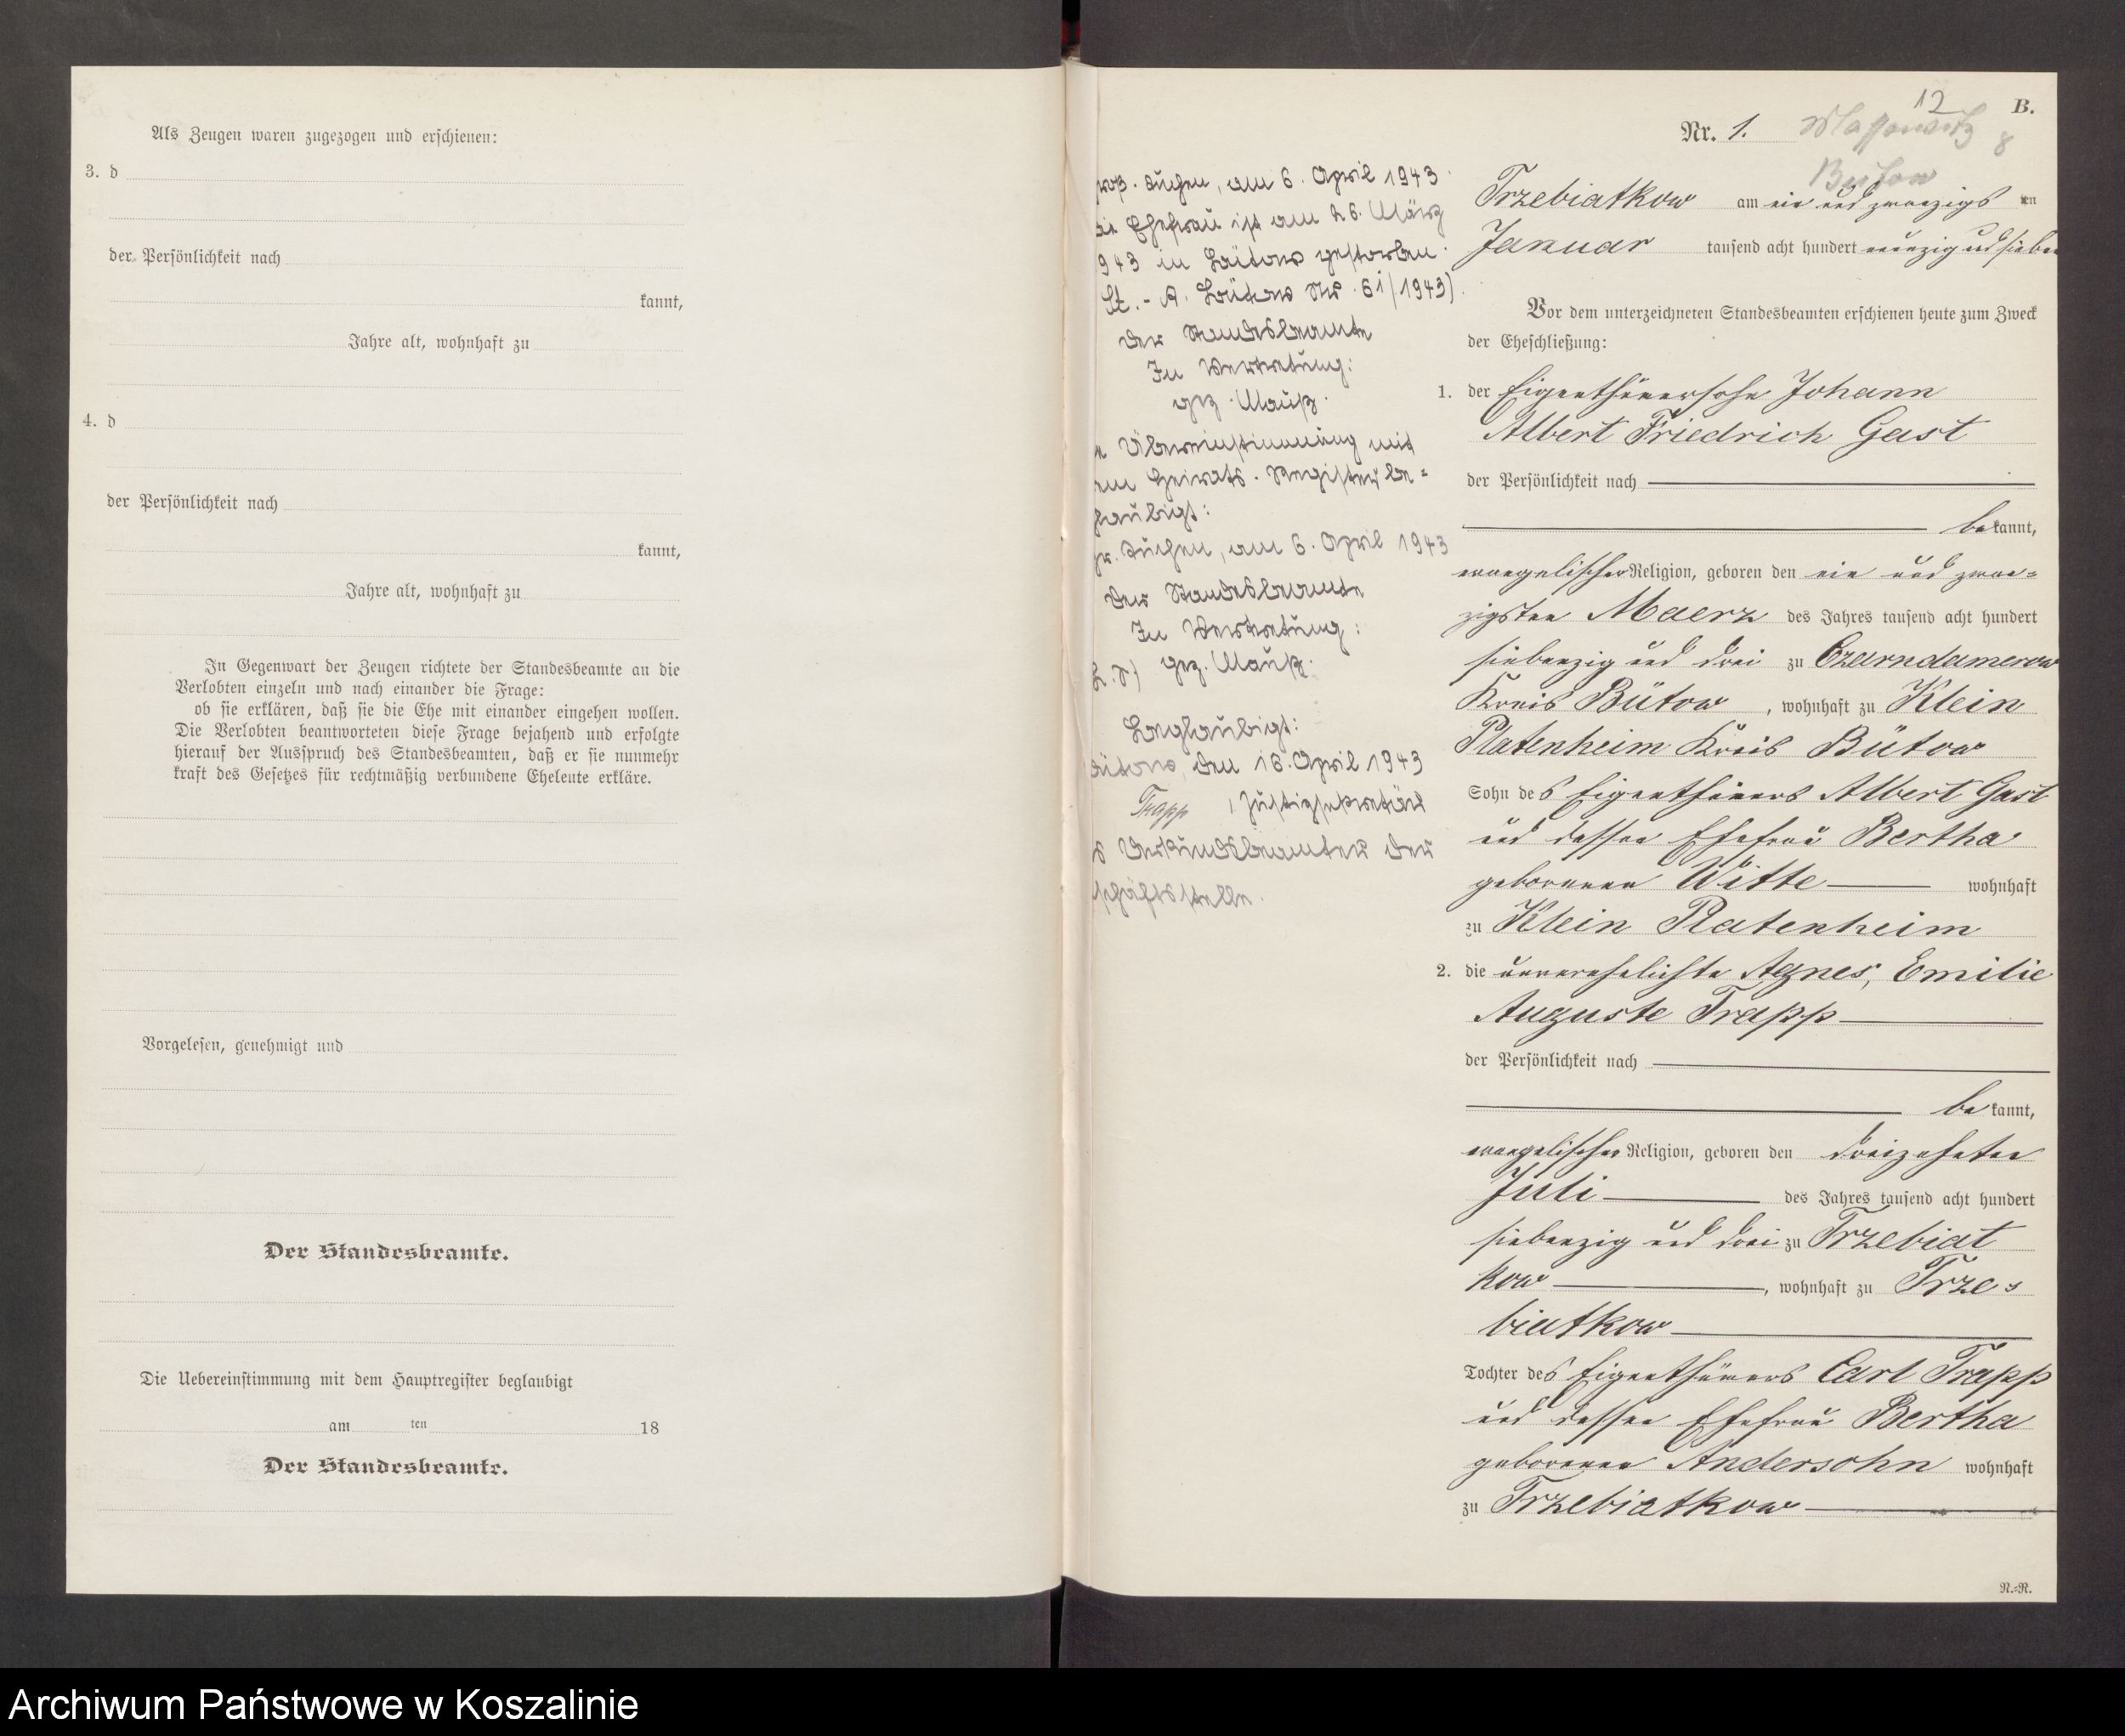 Als Zeugen waren zugezogen und erschienen:
3. d
der Persönlichkeit nach
kannt,
Jahre alt, wohnhaft zu
4. d
der Persönlichkeit nach
kannt,
Jahre alt, wohnhaft zu
In Gegenwart der Zeugen richtete der Standesbeamte an die
Verlobten einzeln und nach einander die Frage:
ob sie erklären, daß sie die Ehe mit einander eingehen wollen.
Die Verlobten beantworteten diese Frage bejahend und erfolgte
hierauf der Ausspruch des Standesbeamten, daß er sie nunmehr
kraft des Gesetzes für rechtmäßig verbundene Eheleute erkläre.
Vorgelesen, genehmigt und
Der Standesbeamte.
Die Uebereinstimmung mit dem Hauptregister beglaubigt
am ten 18
Der Standesbeamte.
Tuchen, am 6. April 1943.
Ehefrau ist am 26. März
943 in Bütow gestorben.
St.-A. Bütow Nr. 61/1943).
Der Standesbeamte
In Vertretung:
gez.
Übereinstimmung mit
em Heirats-Register be-
glaubigt:
Gr. Tuchen, am 6. April 1943
Der Standesbeamte
In Vertretung:
L. S.) gez.
Beglaubigt:
ütow, den 16. April 1943
Trapp, Justizsekretär
s Urkundsbeamter der
schäftsstelle.
12
B.
Nr. 1. Massowitz 8
Butow
Trzebiatkow am ein und zwanzigs ten
Januar tausend acht hundert neunzig und sieben
Vor dem unterzeichneten Standesbeamten erschienen heute zum Zweck
der Eheschließung:
1. der Eigenthümersohn Johann
Albert Friedrich Gast
der Persönlichkeit nach
be kannt,
evangelischer Religion, geboren den ein und zwan-
zigsten Maerz des Jahres tausend acht hundert
siebenzig und drei zu Czarndamerow
Kreis Bütow, wohnhaft zu Klein
Platenheim Kreis Bütow
Sohn des Eigenthümers Albert Gast
und dessen Ehefrau Bertha
geborenen Witte wohnhaft
zu Klein Platenheim
2. die unverehelichte Agnes, Emilie
Auguste Trapp
der Persönlichkeit nach
be kannt,
evangelischer Religion, geboren den dreizehnten
Juli des Jahres tausend acht hundert
siebenzig und drei zu Trzebiat
kow, wohnhaft zu Trze-
biatkow
Tochter des Eigenthümers Carl Trapp
und dessen Ehefrau Bertha
geborenen Andersohn wohnhaft
zu Trzebiatkow
N.-R.
Archiwum Państwowe w Koszalinie